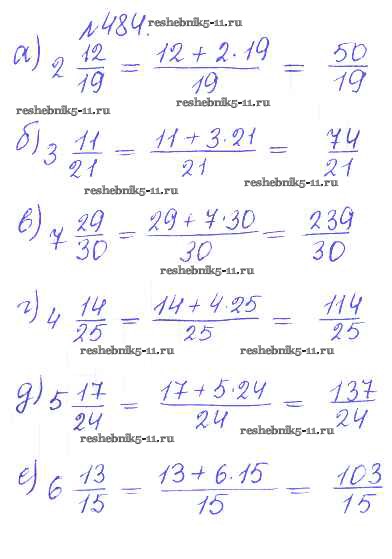 №484.
reshebnik5-11.ru
а) 2 12/19 = (12 + 2·19)/19 = 50/19
reshebnik5-11.ru reshebnik5-11.ru
б) 3 11/21 = (11 + 3·21)/21 = 74/21
reshebnik5-11.ru reshebnik5-11.ru
в) 7 29/30 = (29 + 7·30)/30 = 239/30
reshebnik5-11.ru
г) 4 14/25 = (14 + 4·25)/25 = 114/25
reshebnik5-11.ru reshebnik5-11.ru
д) 5 17/24 = (17 + 5·24)/24 = 137/24
reshebnik5-11.ru reshebnik5-11.ru
е) 6 13/15 = (13 + 6·15)/15 = 103/15